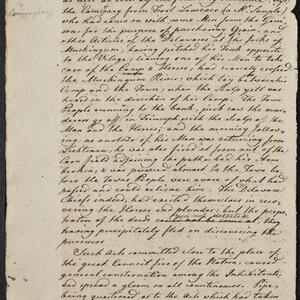 Commissary
the Comissary from Fort Laurence, a Mr. Sample,
who had come on with some Men from the Garri-
son, for the purpose of purchasing Grain, and
other Articles of the Delawares at the forks of
Muskingum, having pitched his Tent opposite
to the Village, leaving one of his Men to take
care of the Camp & Horses, had scarcely crossed
the Muskingum River, which lay between his
Camp and the Town, when the Scalp yell was
heard in the direction of his Camp. The Town
People running to the bank, just saw the mur-
derer go off in Triumph with the Scalp of the
Man and the Horses; and the morning follow-
ing, as another of his Men was returning from
Lichtenau, he was also fired at from out of the
Corn field adjoining the path & had his Arm
broken, & was pursued almost to the Town be-
fore the Towns People were aware of what had
passed and could relieve him. The Delaware
Chief indeed, had exerted himself in reco-
vering the Horses and plunder; but the perpe-
trator of the deeds
having precipitately fled on discovering the
pursuers
Such Acts committed close to the place of
the great Council fire of the Nation, caused
general consternation among the Inhabitants,
and spread a gloom on all countenances. Pipe,
being questioned as to the Act which has taken